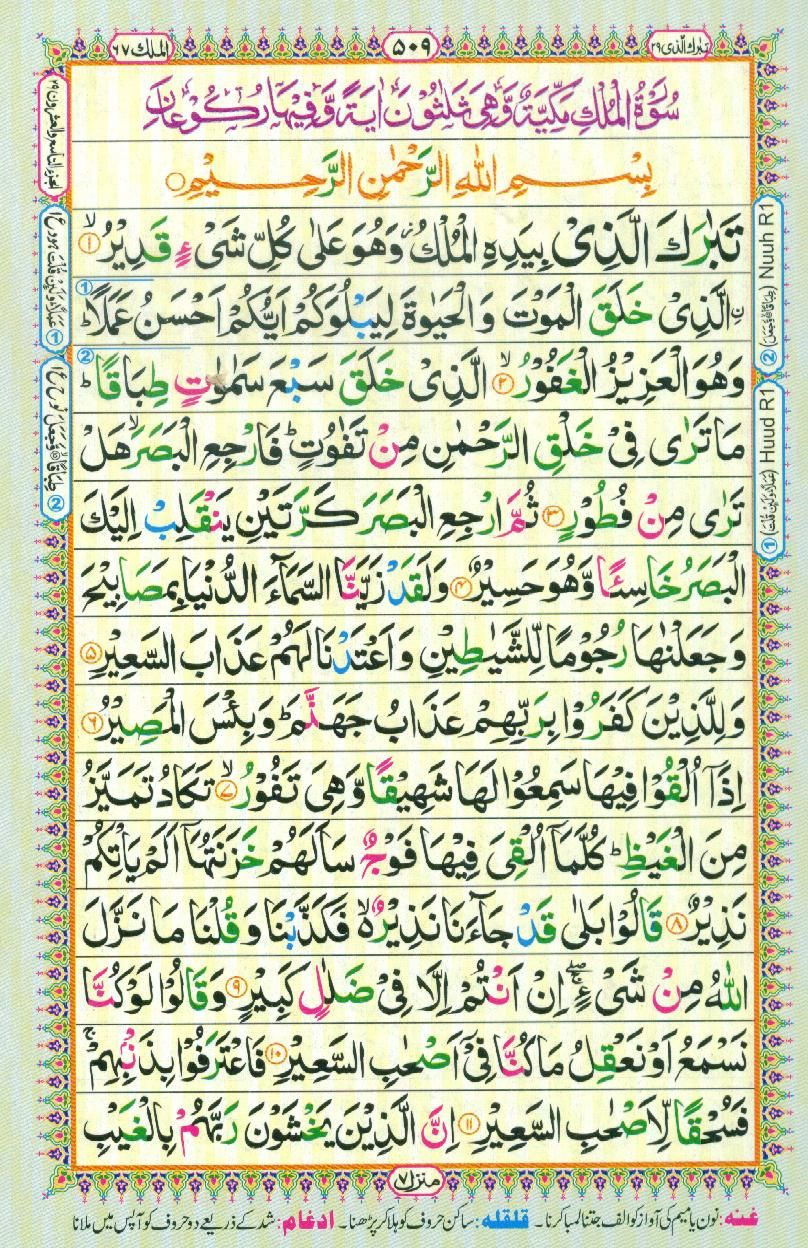 تبٰرك الذی ٢٩
٥٠٩
الملك ٦٧
سُوْرَةُ الْمُلْكِ مَكِّيَّةٌ وَّهِيَ ثَلٰثُوْنَ اٰيَةً وَّفِيْهَا رُكُوْعَانِ
بِسْمِ اللّٰهِ الرَّحْمٰنِ الرَّحِيْمِ
تَبٰرَكَ الَّذِیْ بِيَدِهِ الْمُلْكُ ز وَهُوَ عَلٰی كُلِّ شَیْءٍ قَدِيْرُ ۙ﴿١﴾
نِ الَّذِیْ خَلَقَ الْمَوْتَ وَ الْحَيٰوةَ لِيَبْلُوَكُمْ اَيُّكُمْ اَحْسَنُ عَمَلًا ؕ
وَهُوَ الْعَزِيْزُ الْغَفُوْرُ ۙ﴿٢﴾ الَّذِیْ خَلَقَ سَبْعَ سَمٰوٰتٍ طِبَاقًا ؕ
مَا تَرٰی فِیْ خَلْقِ الرَّحْمٰنِ مِنْ تَفٰوُتٍ ؕ فَارْجِعِ الْبَصَرَ ۙ هَلْ
تَرٰی مِنْ فُطُوْرٍ ﴿٣﴾ ثُمَّ ارْجِعِ الْبَصَرَ كَرَّتَيْنِ يَنْقَلِبْ اِلَيْكَ
الْبَصَرُ خَاسِئًا وَّهُوَ حَسِيْرٌ ﴿٤﴾ وَلَقَدْ زَيَّنَّا السَّمَآءَ الدُّنْيَا بِمَصَابِيْحَ
وَجَعَلْنٰهَا رُجُوْمًا لِّلشَّيٰطِيْنِ وَاَعْتَدْنَا لَهُمْ عَذَابَ السَّعِيْرِ ﴿٥﴾
وَلِلَّذِيْنَ كَفَرُوْا بِرَبِّهِمْ عَذَابُ جَهَنَّمَ ؕ وَبِئْسَ الْمَصِيْرُ ﴿٦﴾
اِذَاۤ اُلْقُوْا فِيْهَا سَمِعُوْا لَهَا شَهِيْقًا وَّهِیَ تَفُوْرُ ۙ﴿٧﴾ تَكَادُ تَمَيَّزُ
مِنَ الْغَيْظِ ؕ كُلَّمَاۤ اُلْقِیَ فِيْهَا فَوْجٌ سَاَلَهُمْ خَزَنَتُهَاۤ اَلَمْ يَاْتِكُمْ
نَذِيْرٌ ﴿٨﴾ قَالُوْا بَلٰی قَدْ جَآءَنَا نَذِيْرٌ ۙ۬ فَكَذَّبْنَا وَقُلْنَا مَا نَزَّلَ
اللّٰهُ مِنْ شَیْءٍ ۚۖ اِنْ اَنْتُمْ اِلَّا فِیْ ضَلٰلٍ كَبِيْرٍ ﴿٩﴾ وَقَالُوْا لَوْ كُنَّا
نَسْمَعُ اَوْ نَعْقِلُ مَا كُنَّا فِیْۤ اَصْحٰبِ السَّعِيْرِ ﴿١٠﴾ فَاعْتَرَفُوْا بِذَنْۢبِهِمْ ۚ
فَسُحْقًا لِّاَصْحٰبِ السَّعِيْرِ ﴿١١﴾ اِنَّ الَّذِيْنَ يَخْشَوْنَ رَبَّهُمْ بِالْغَيْبِ
منزل ٧
② Nuuh R1
① Huud R1
غنه: نون یا میم کی آواز کو الف جتنا لمبا کرنا۔ قلقله: ساکن حروف کو ہلا کر پڑھنا۔ ادغام: شد کے ذریعے دو حروف کو آپس میں ملانا